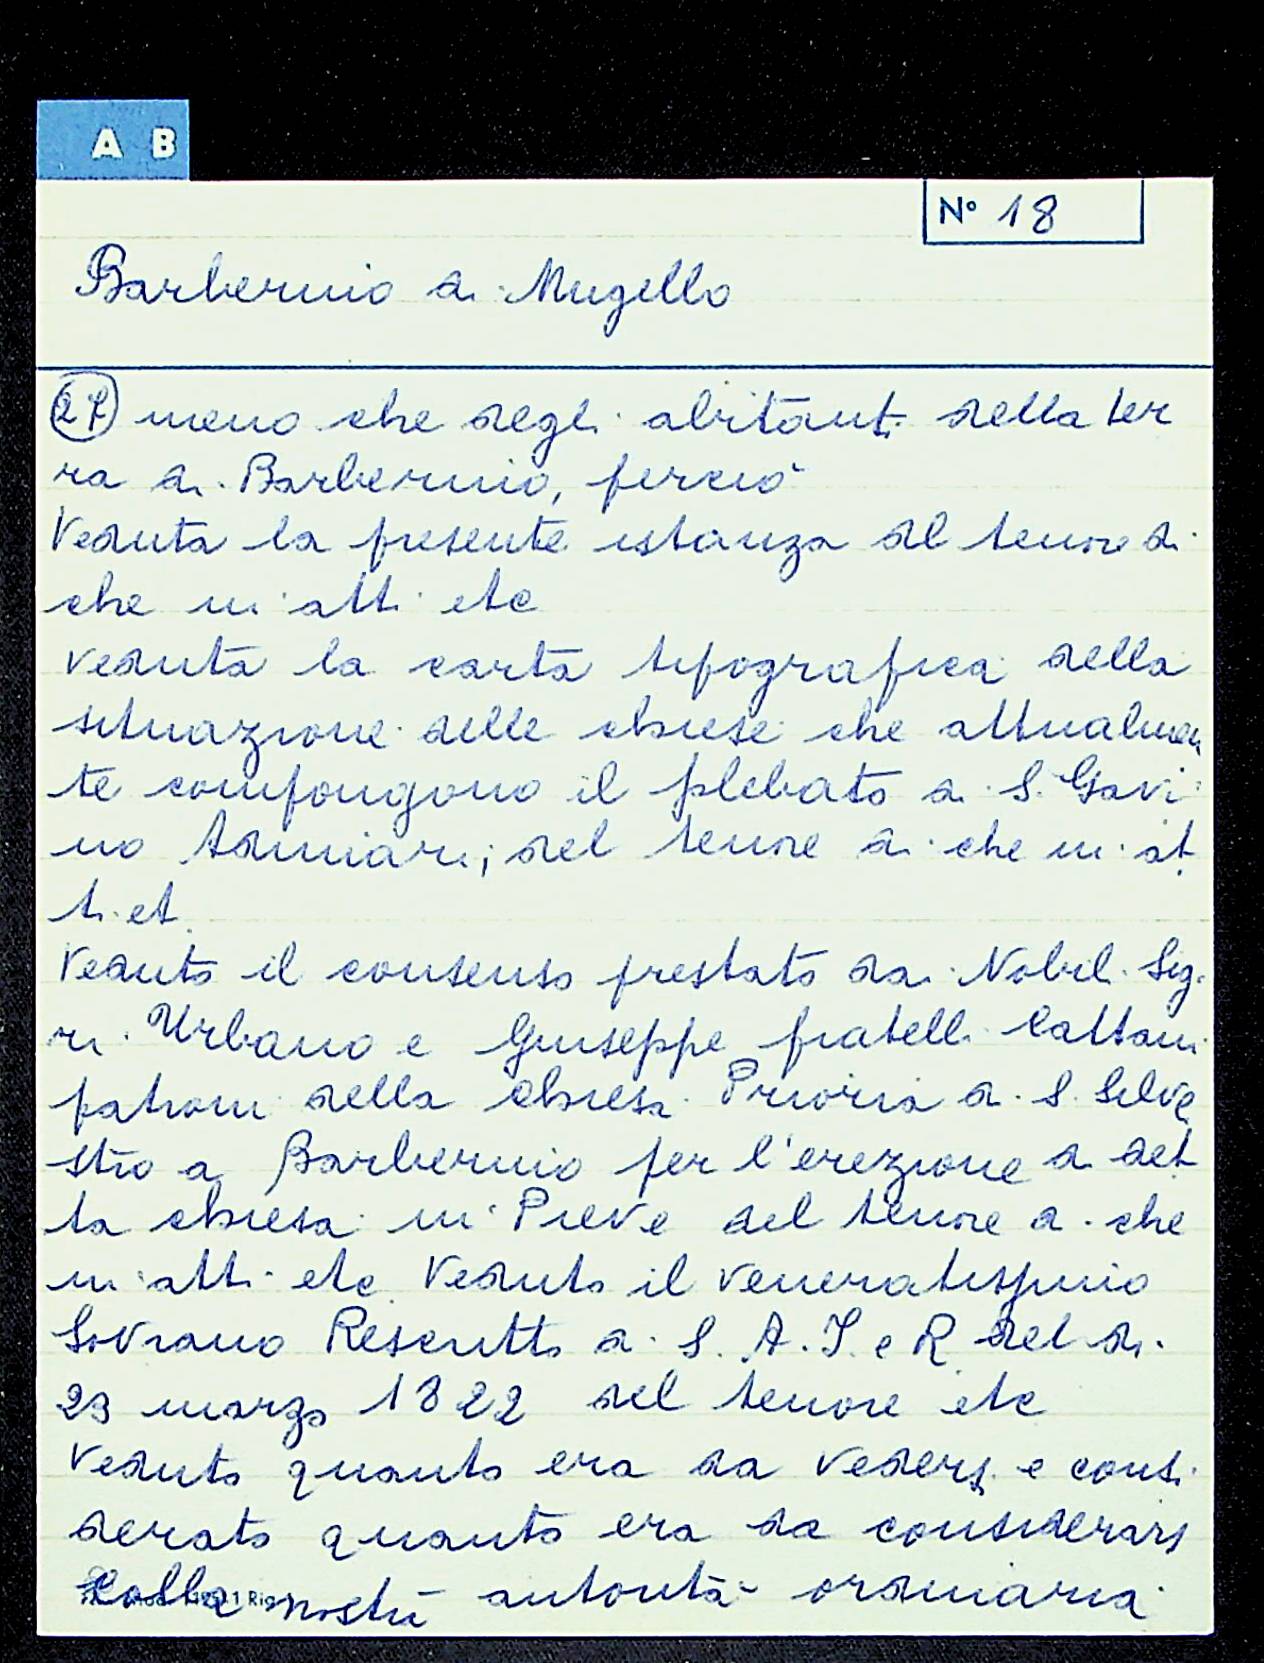 A B
N° 18
Barberino di Mugello
27 meno che degli abitanti della ter
ra di Barberino, perciò
Veduta la presente istanza del tenore di
che in atti etc
veduta la carta tipografica della
situazione delle chiese che attualmen
te compongono il plebato di S. Gavi
no Adimari, del tenore di che in at
ti et
Veduto il consenso prestato dai Nobili Sig.
ri Urbano e Giuseppe fratelli Cattani
patroni della chiesa Prioria di S. Silve
stro a Barberino per l'erezione di det
ta chiesa in Pieve del tenore di che
in atti etc Veduto il veneratissimo
Sovrano Rescritto di S. A. I. e R del di
23 marzo 1822 del tenore etc
Veduto quanto era da vedersi e consi
derato quanto era da considerarsi
colla nostra autorità ordinaria